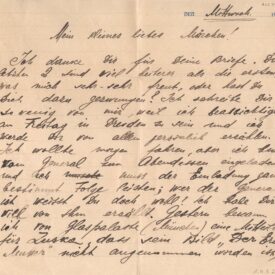 DEN Mittwoch
Mein kleines liebes Märchen!
Ich danke Dir für Deine Briefe. Die
letzten 2 sind viel heiterer als die ersten
was mich sehr freut, oder hast Du
Dich dazu gezwungen? Ich schreibe Dir
so wenig von mir weil ich
am Freitag in Dresden zu sein und ich
werde Dir von allem persönlich erzählen
Ich wollte morgen fahren aber ich bin
vom General zum Abendessen eingeladen
und ich muss der Einladung ganz
bestimmt Folge leisten; wer der General
ist weisst Du doch wohl! ich habe Dir
viel von ihm erzählt. Gestern bekam
ich vom Glaspalaste (München) eine
für, dass sein Bild „Der
nicht angenommen worden ist